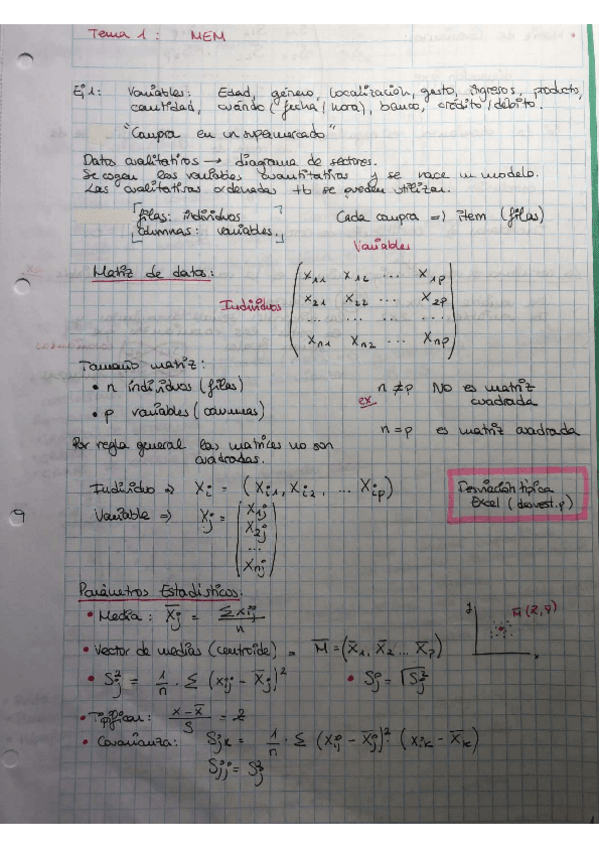 Tema 1: MEM
Ej 1: Variables: Edad, género, localización, gasto, ingresos, producto,
cantidad, cuándo (fecha / hora), banco, crédito / débito.
"Compra en un supermercado"
Datos cualitativos → diagrama de sectores.
Se cogen las variables cuantitativas y se hace un modelo.
Las cualitativas ordenadas tb se pueden utilizar.
filas: individuos
columnas: variables.
Cada compra => item (filas)
Variables
Matriz de datos:
Individuos
X11 X12 ... X1p
X21 X22 ... X2p
... ... ... ...
Xn1 Xn2 ... Xnp
Tamaño matriz:
• n individuos (filas)
• p variables (columnas)
ex.
n ≠ p No es matriz
cuadrada
n = p es matriz cuadrada
Por regla general las matrices no son
cuadradas.
Individuo => Xi = (Xi1, Xi2, ... Xip)
Variable => Xj = (X1j
X2j
...
Xnj)
Desviación típica
Excel (desvest.p)
Parámetros Estadísticos:
• Media: X̄j = Σxij / n
• Vector de medias (centroide) = M̄ = (X̄1, X̄2 ... X̄p)
• Sj² = 1/n · Σ (xij - X̄j)²
• Sj = √Sj²
• Tipificar: x - x̄ / S = z
• Covarianza: Sjk = 1/n · Σ (Xij - X̄j)· (Xik - X̄k)
Sjj = Sj²
y
M̄ (x̄, ȳ)
x